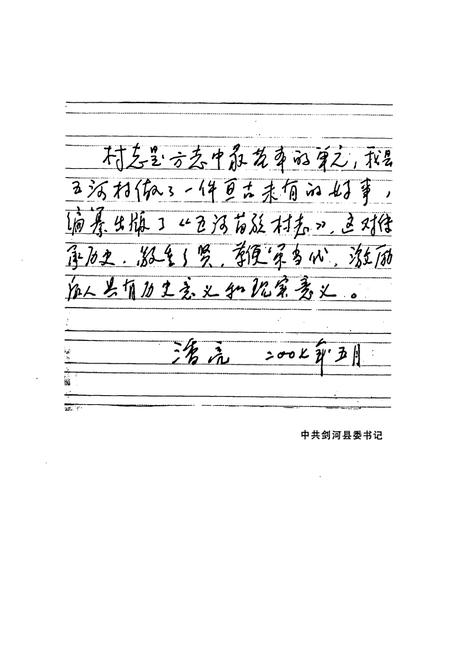 村志是方志中最基本的单元，我县
五河村做了一件亘古未有的好事，
编纂出版了《五河苗族村志》，这对传
承历史，敬重乡贤， 当代，激励
后人具有历史意义和现实意义。
潘亮 二00七年五月
中共剑河县委书记